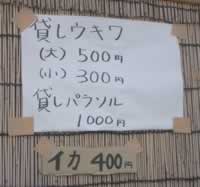 貸しウキワ
(大) 500円
(小) 300円
貸しパラソル
1000円
イカ 400円